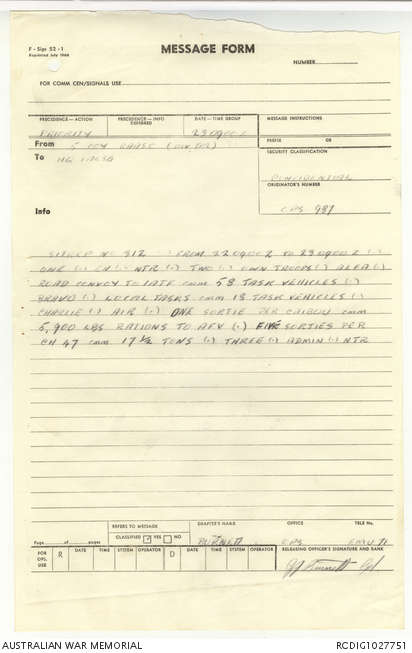 F - Sigs 52 - 1
MESSAGE FORM
NUMBER
FOR COMM CEN/SIGNALS USE
PRECEDENCE—ACTION
PRECEDENCE—INFO
DEFERRED
DATE—TIME GROUP
MESSAGE INSTRUCTIONS
PRIORITY
230900Z
PREFIX
OR
From 5 COY RAASC
To HQ 1 ALSG
SECURITY CLASSIFICATION
CONFIDENTIAL
ORIGINATOR'S NUMBER
Info
OPS 987
SITREP NO 312 FROM 220900Z TO 230900Z (.)
ONE (.) EN (.) NTR (.) TWO (.) OWN TROOPS (.) ALFA (.)
ROAD CONVOY TO 1ATF CMM 58 TASK VEHICLES (.)
BRAVO (.) LOCAL TASKS CMM 18 TASK VEHICLES (.)
CHARLIE (.) AIR (.) ONE SORTIE PER CAIBOU CMM
5,900 LBS RATIONS TO AFV (.) FIVE SORTIES PER
CH 47 CMM 17 ½ TONS (.) THREE (.) ADMIN (.) NTR
Page of pages
REFERS TO MESSAGE
CLASSIFIED YES NO
DRAFTER'S NAME
OFFICE
TELE No.
BURNETT
OPS
EMU 71
FOR
OPS.
USE
R
DATE
TIME
SYSTEM
OPERATOR
D
DATE
TIME
SYSTEM
OPERATOR
RELEASING OFFICER'S SIGNATURE AND RANK
AUSTRALIAN WAR MEMORIAL
RCDIG1027751